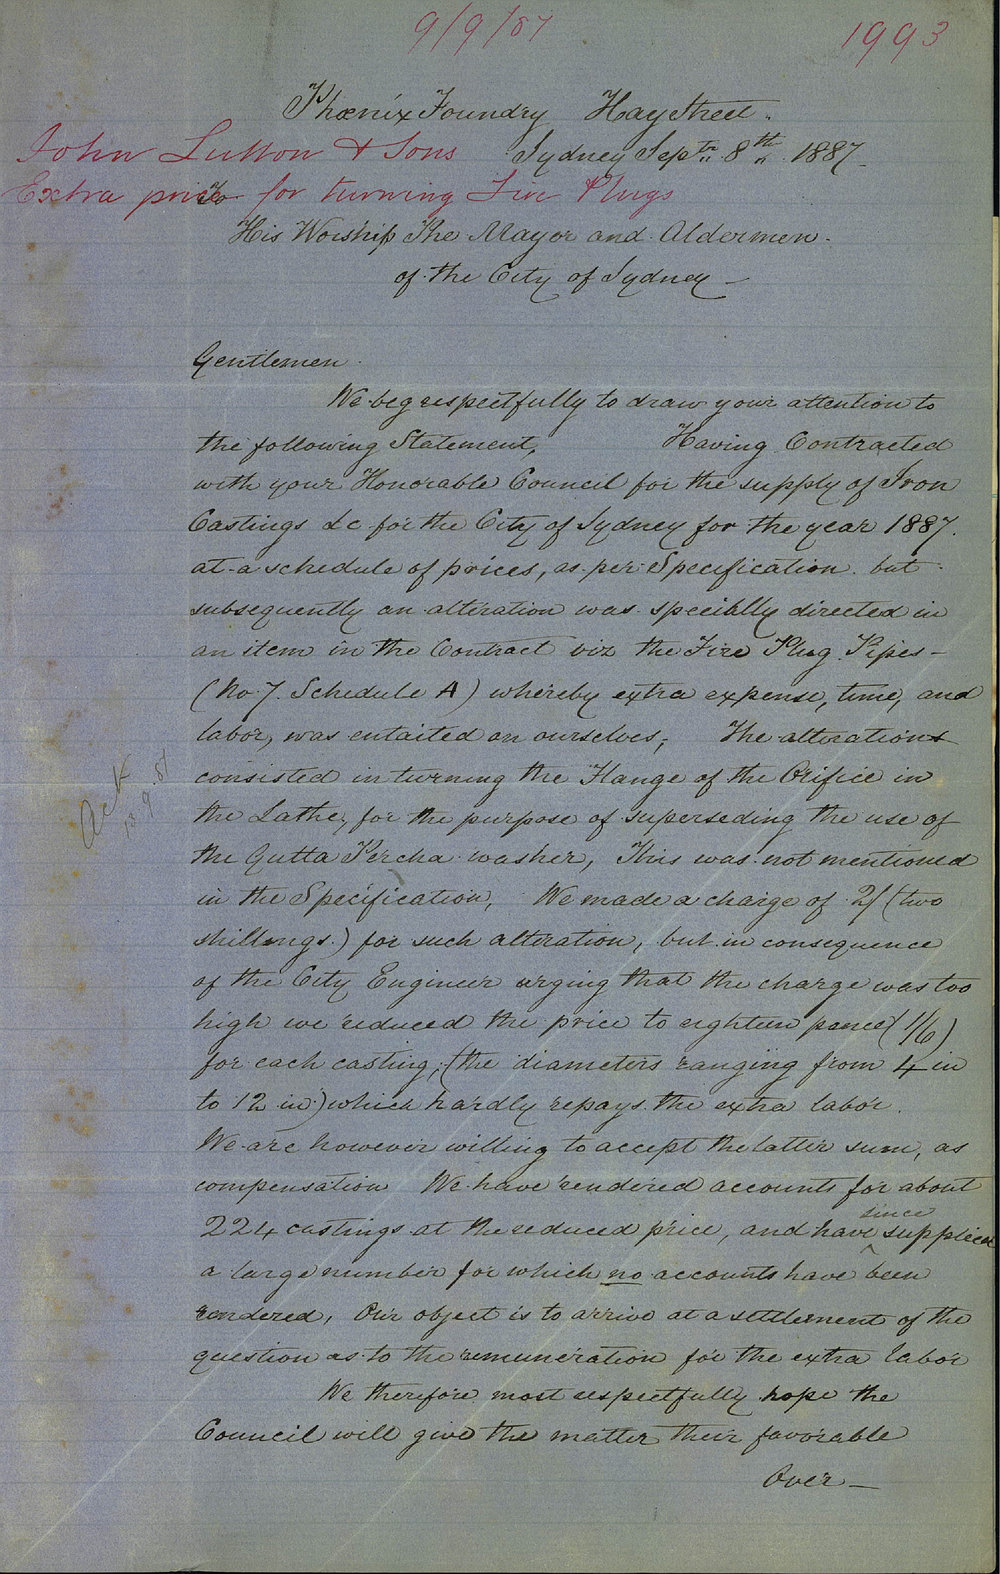 9/9/87 1993
Phœnix Foundry Hay Street.
John Lutton & Sons Sydney Septr 8th 1887.
Extra price for turning Fire Plugs
To
His Worship The Mayor and Aldermen.
of the City of Sydney –
Gentlemen.
We beg respectfully to draw your attention to
the following Statement, Having Contracted
with your Honorable Council for the supply of Iron
Castings &c for the City of Sydney for the year 1887.
at a schedule of prices, as per Specification. but
subsequently an alteration was specially directed in
an item in the Contract viz the Fire Plug Pipes –
(No 7. Schedule A) whereby extra expense, time, and
labor, was entailed on ourselves, The alterations
consisted in turning the Flange of the Orifice in
the Lathe, for the purpose of superseding the use of
the Gutta Percha washer, This was not mentioned
in the Specification, We made a charge of 2/ (two
shillings.) for such alteration, but in consequence
of the City Engineer urging that the charge was too
high we reduced the price to eighteen pence (1/6)
for each casting, (the diameters ranging from 4 in
to 12 in) which hardly repays the extra labor.
We are however willing to accept the latter sum, as
compensation We have rendered accounts for about
224 castings at the reduced price, and have since supplied
a large number for which no accounts have been
rendered, Our object is to arrive at a settlement of the
question as to the remuneration for the extra labor
We therefore most respectfully hope the
Council will give the matter their favorable
Over –
Ack